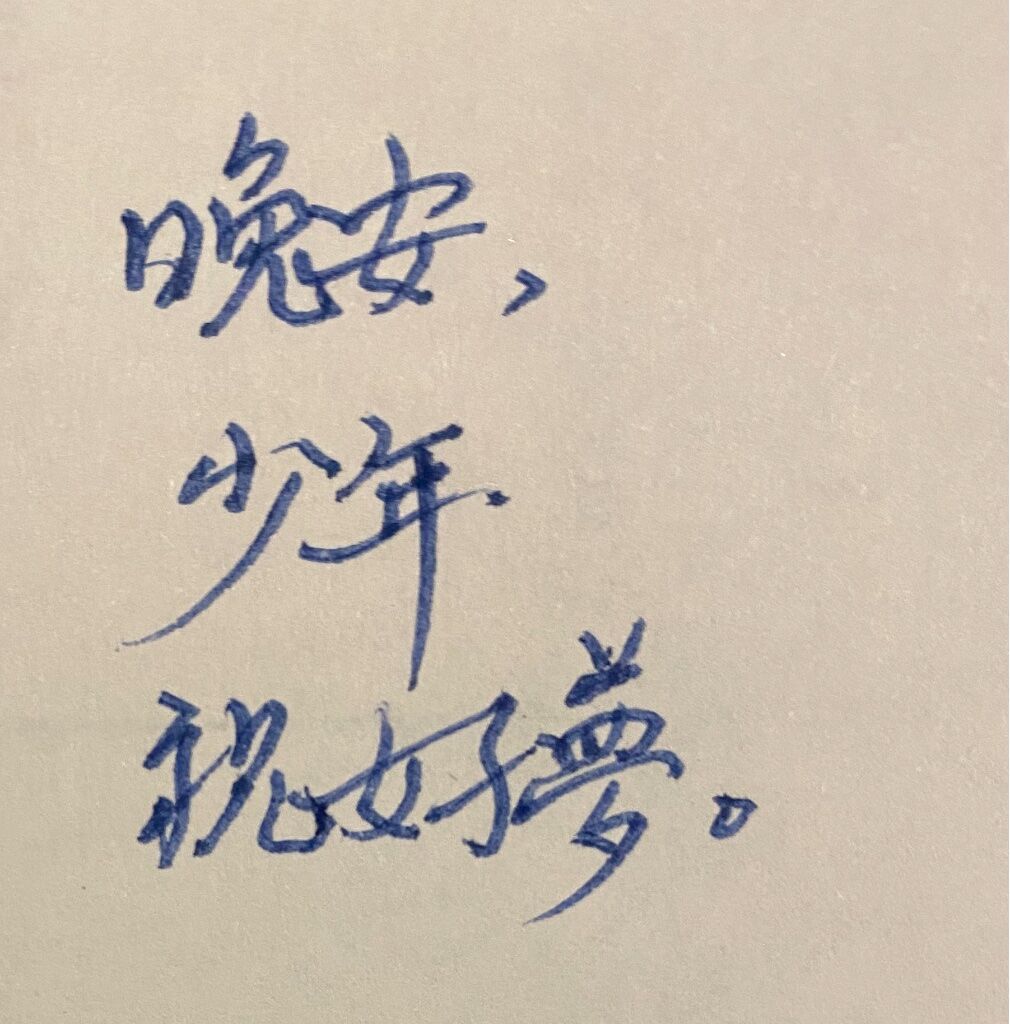 晚安，
少年
祝好夢。